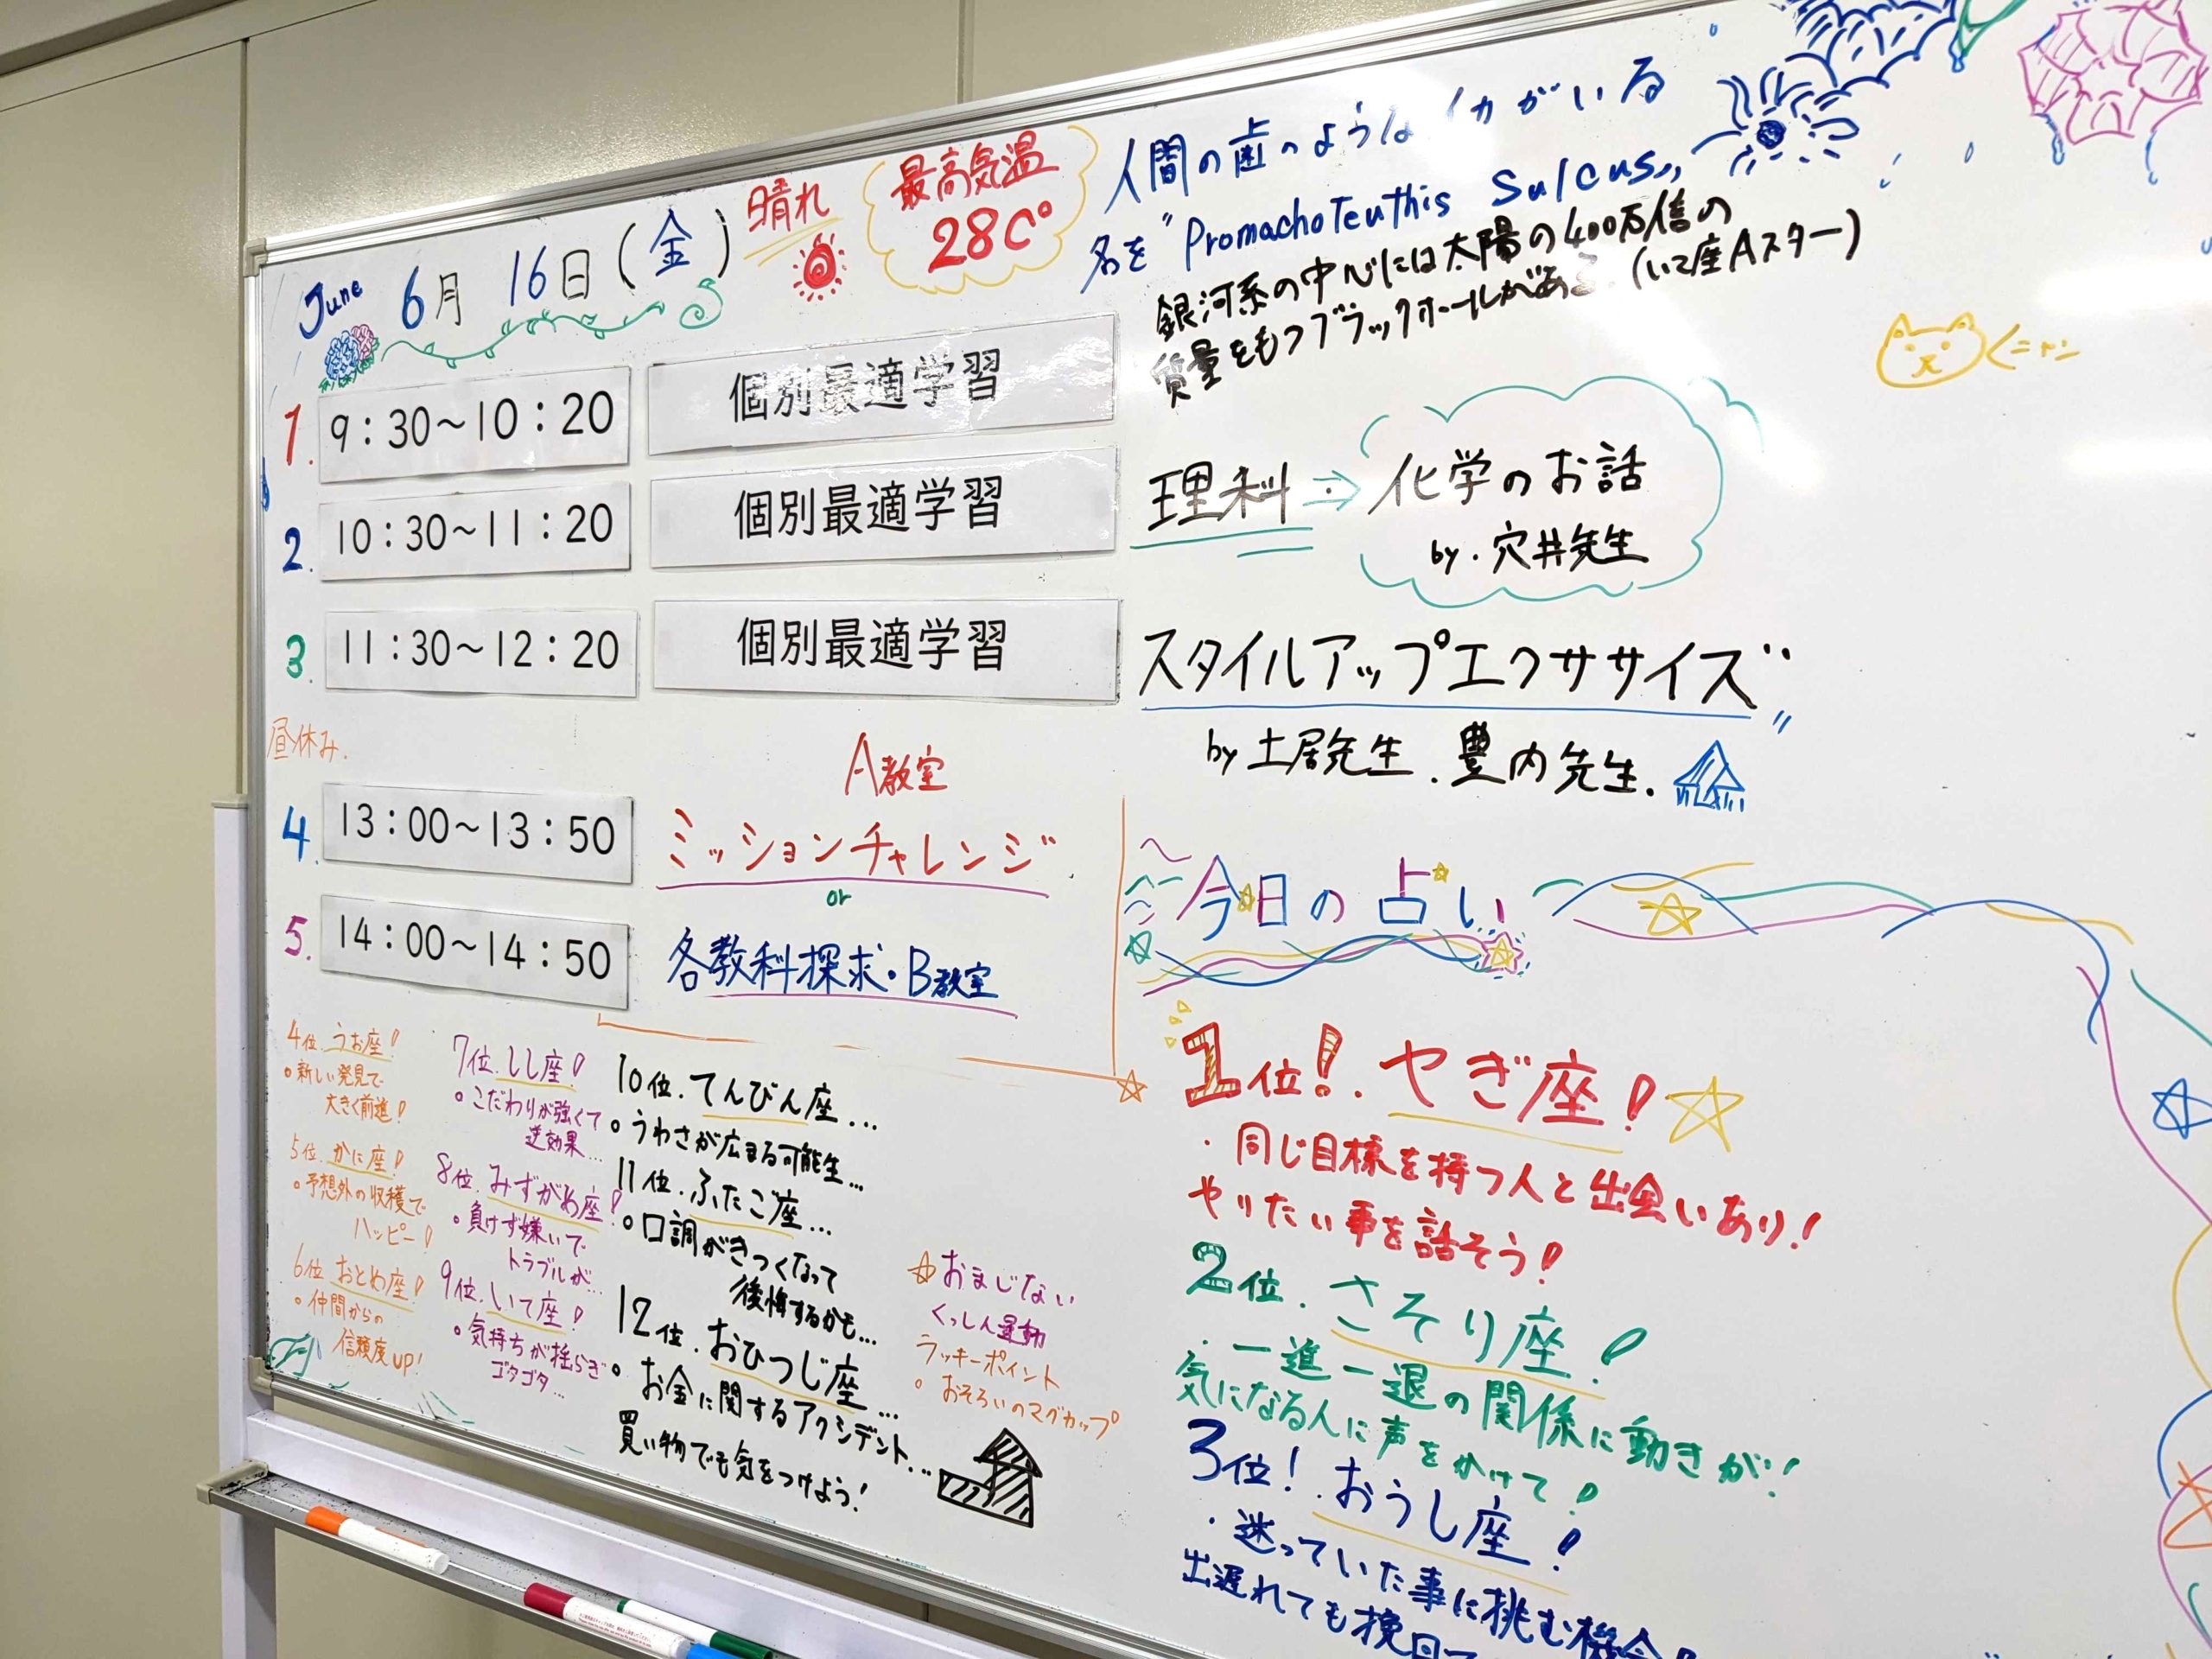 June 6月 16日(金)
晴れ
最高気温
28C°
人間の歯のようなイカがいる
名を"Promachoteuthis Sulcus"
銀河系の中心には太陽の400万倍の
質量をもつブラックホールがある。(いて座Aスター)
1. 9:30~10:20 個別最適学習
2. 10:30~11:20 個別最適学習
3. 11:30~12:20 個別最適学習
昼休み.
4. 13:00~13:50
5. 14:00~14:50
A教室
ミッションチャレンジ
or
各教科探求・B教室
理科⇒化学のお話
by.穴井先生
スタイルアップエクササイズ
by 土居先生.豊内先生.
今日の占い
1位!.やぎ座!
・同じ目標を持つ人と出会いあり!
やりたい事を話そう!
2位.さそり座!
・一進一退の関係に動きが!
気になる人に声をかけて!
3位!.おうし座!
・迷っていた事に挑む機会!
出遅れても挽回
4位.うお座!
・新しい発見で
大きく前進!
5位.かに座!
・予想外の収穫で
ハッピー!
6位.おとめ座!
・仲間からの
信頼度UP!
7位.しし座!
・こだわりが強くて
逆効果...
8位.みずがめ座!
・負けず嫌いで
トラブルが...
9位.いて座!
・気持ちが揺らぎ
ゴタゴタ...
10位.てんびん座...
・うわさが広まる可能生...
11位.ふたご座...
・口調がきつくなって
後悔するかも...
12位.おひつじ座...
・お金に関するアクシデント...
買い物でも気をつけよう!
☆おまじない
くっしん運動
ラッキーポイント
・おそろいのマグカップ